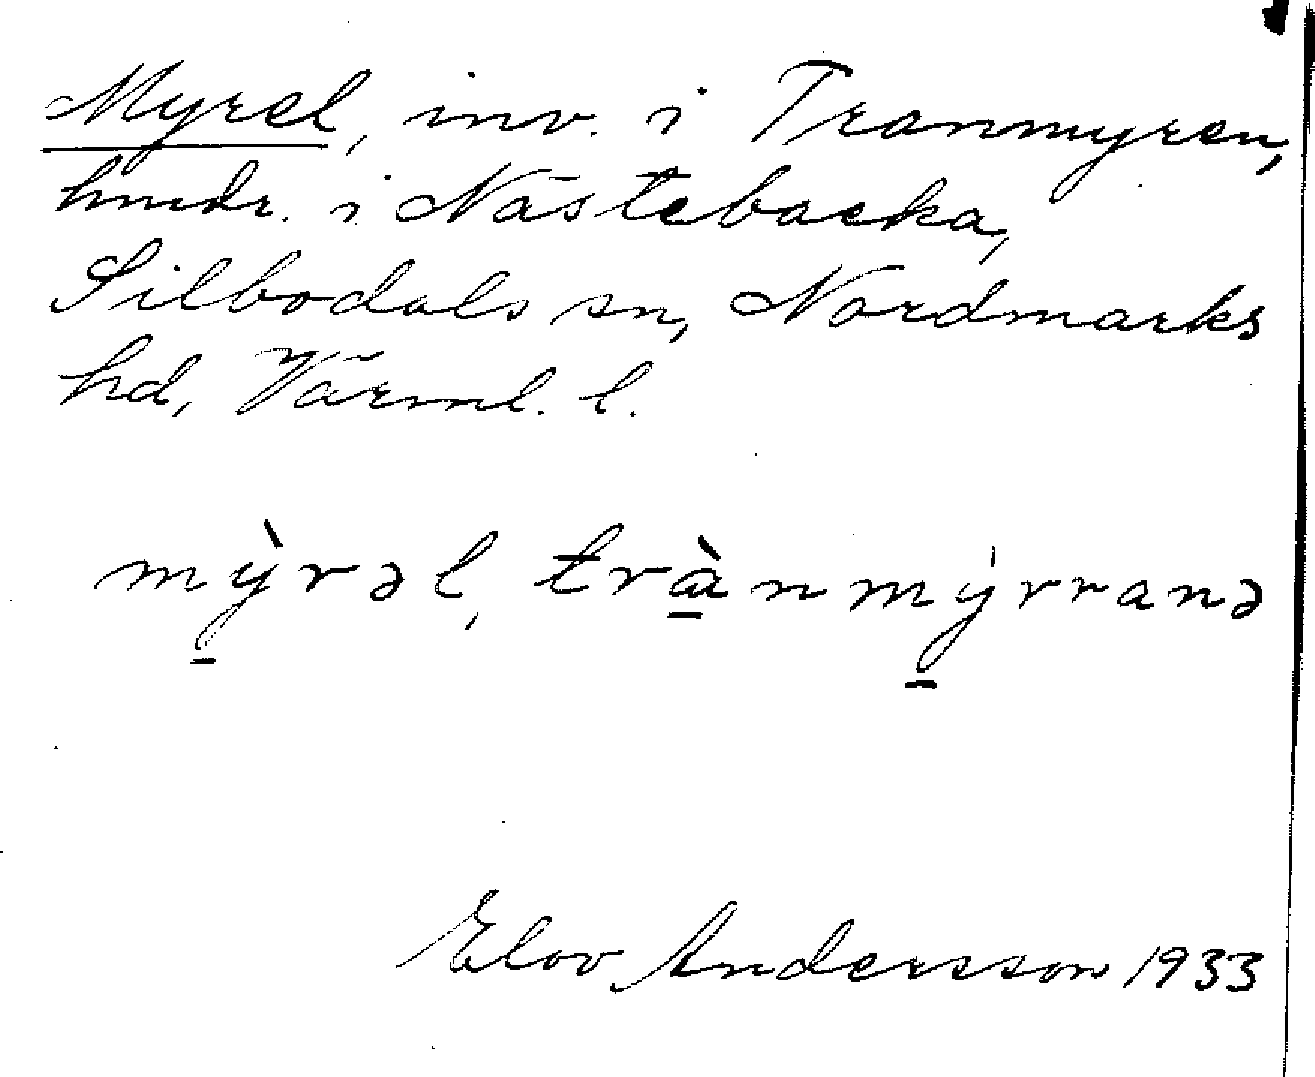 Myrel, inv. i Tranmyren,
hmdr. i Nästebacka,
Silbodals sn, Nordmarks
hd, Värml. l.
mỳrəl, trànmýrranə
Elov Andersson 1933